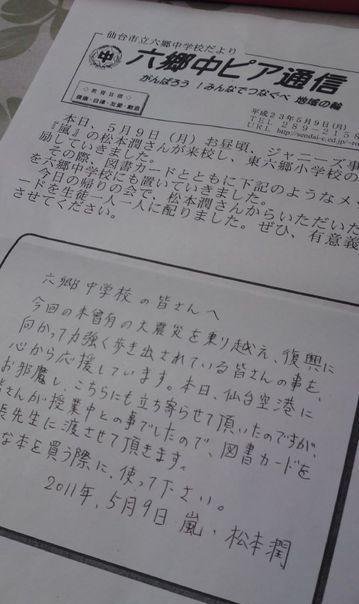 仙台市立六郷中学校だより
中
六郷中ピア通信
がんばろう!みんなでつなぐべ 地域の輪
◇教育目標◇
平成23年5月9日(月)
TEL 289-215
URL http://sendai-c.ed.jp/
本日、5月9日(月)お昼頃、ジャニーズ事
『嵐』の松本潤さんが来校し、東六郷小学校の
励していきました。
その際、図書カードとともに下記のようなメッ
を六郷中学校にも置いていきました。
今日の帰りの会で、松本潤さんからいただいた
ードを生徒一人一人に配りました。ぜひ、有意義
させてください。
六郷中学校の皆さんへ
今回の未曾有の大震災を乗り越え、復興に
向かって力強く歩き出されている皆さんの事を、
心から応援しています。本日、仙台空港に
お邪魔し、こちらにも立ち寄らせて頂いたのですが、
皆さんが授業中との事でしたので、図書カードを
長先生に渡させて頂きます。
な本を買う際に、使って下さい。
2011年、5月9日 嵐、松本潤